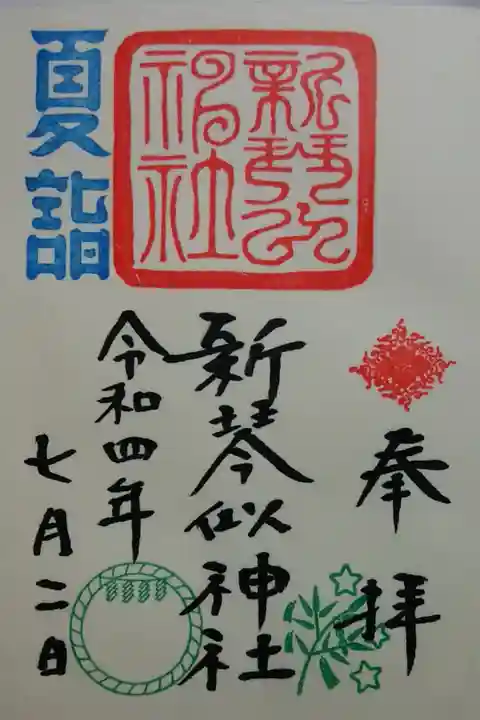 奉拝
新琴似神社
令和四年
七月二日
夏詣
新琴似神社